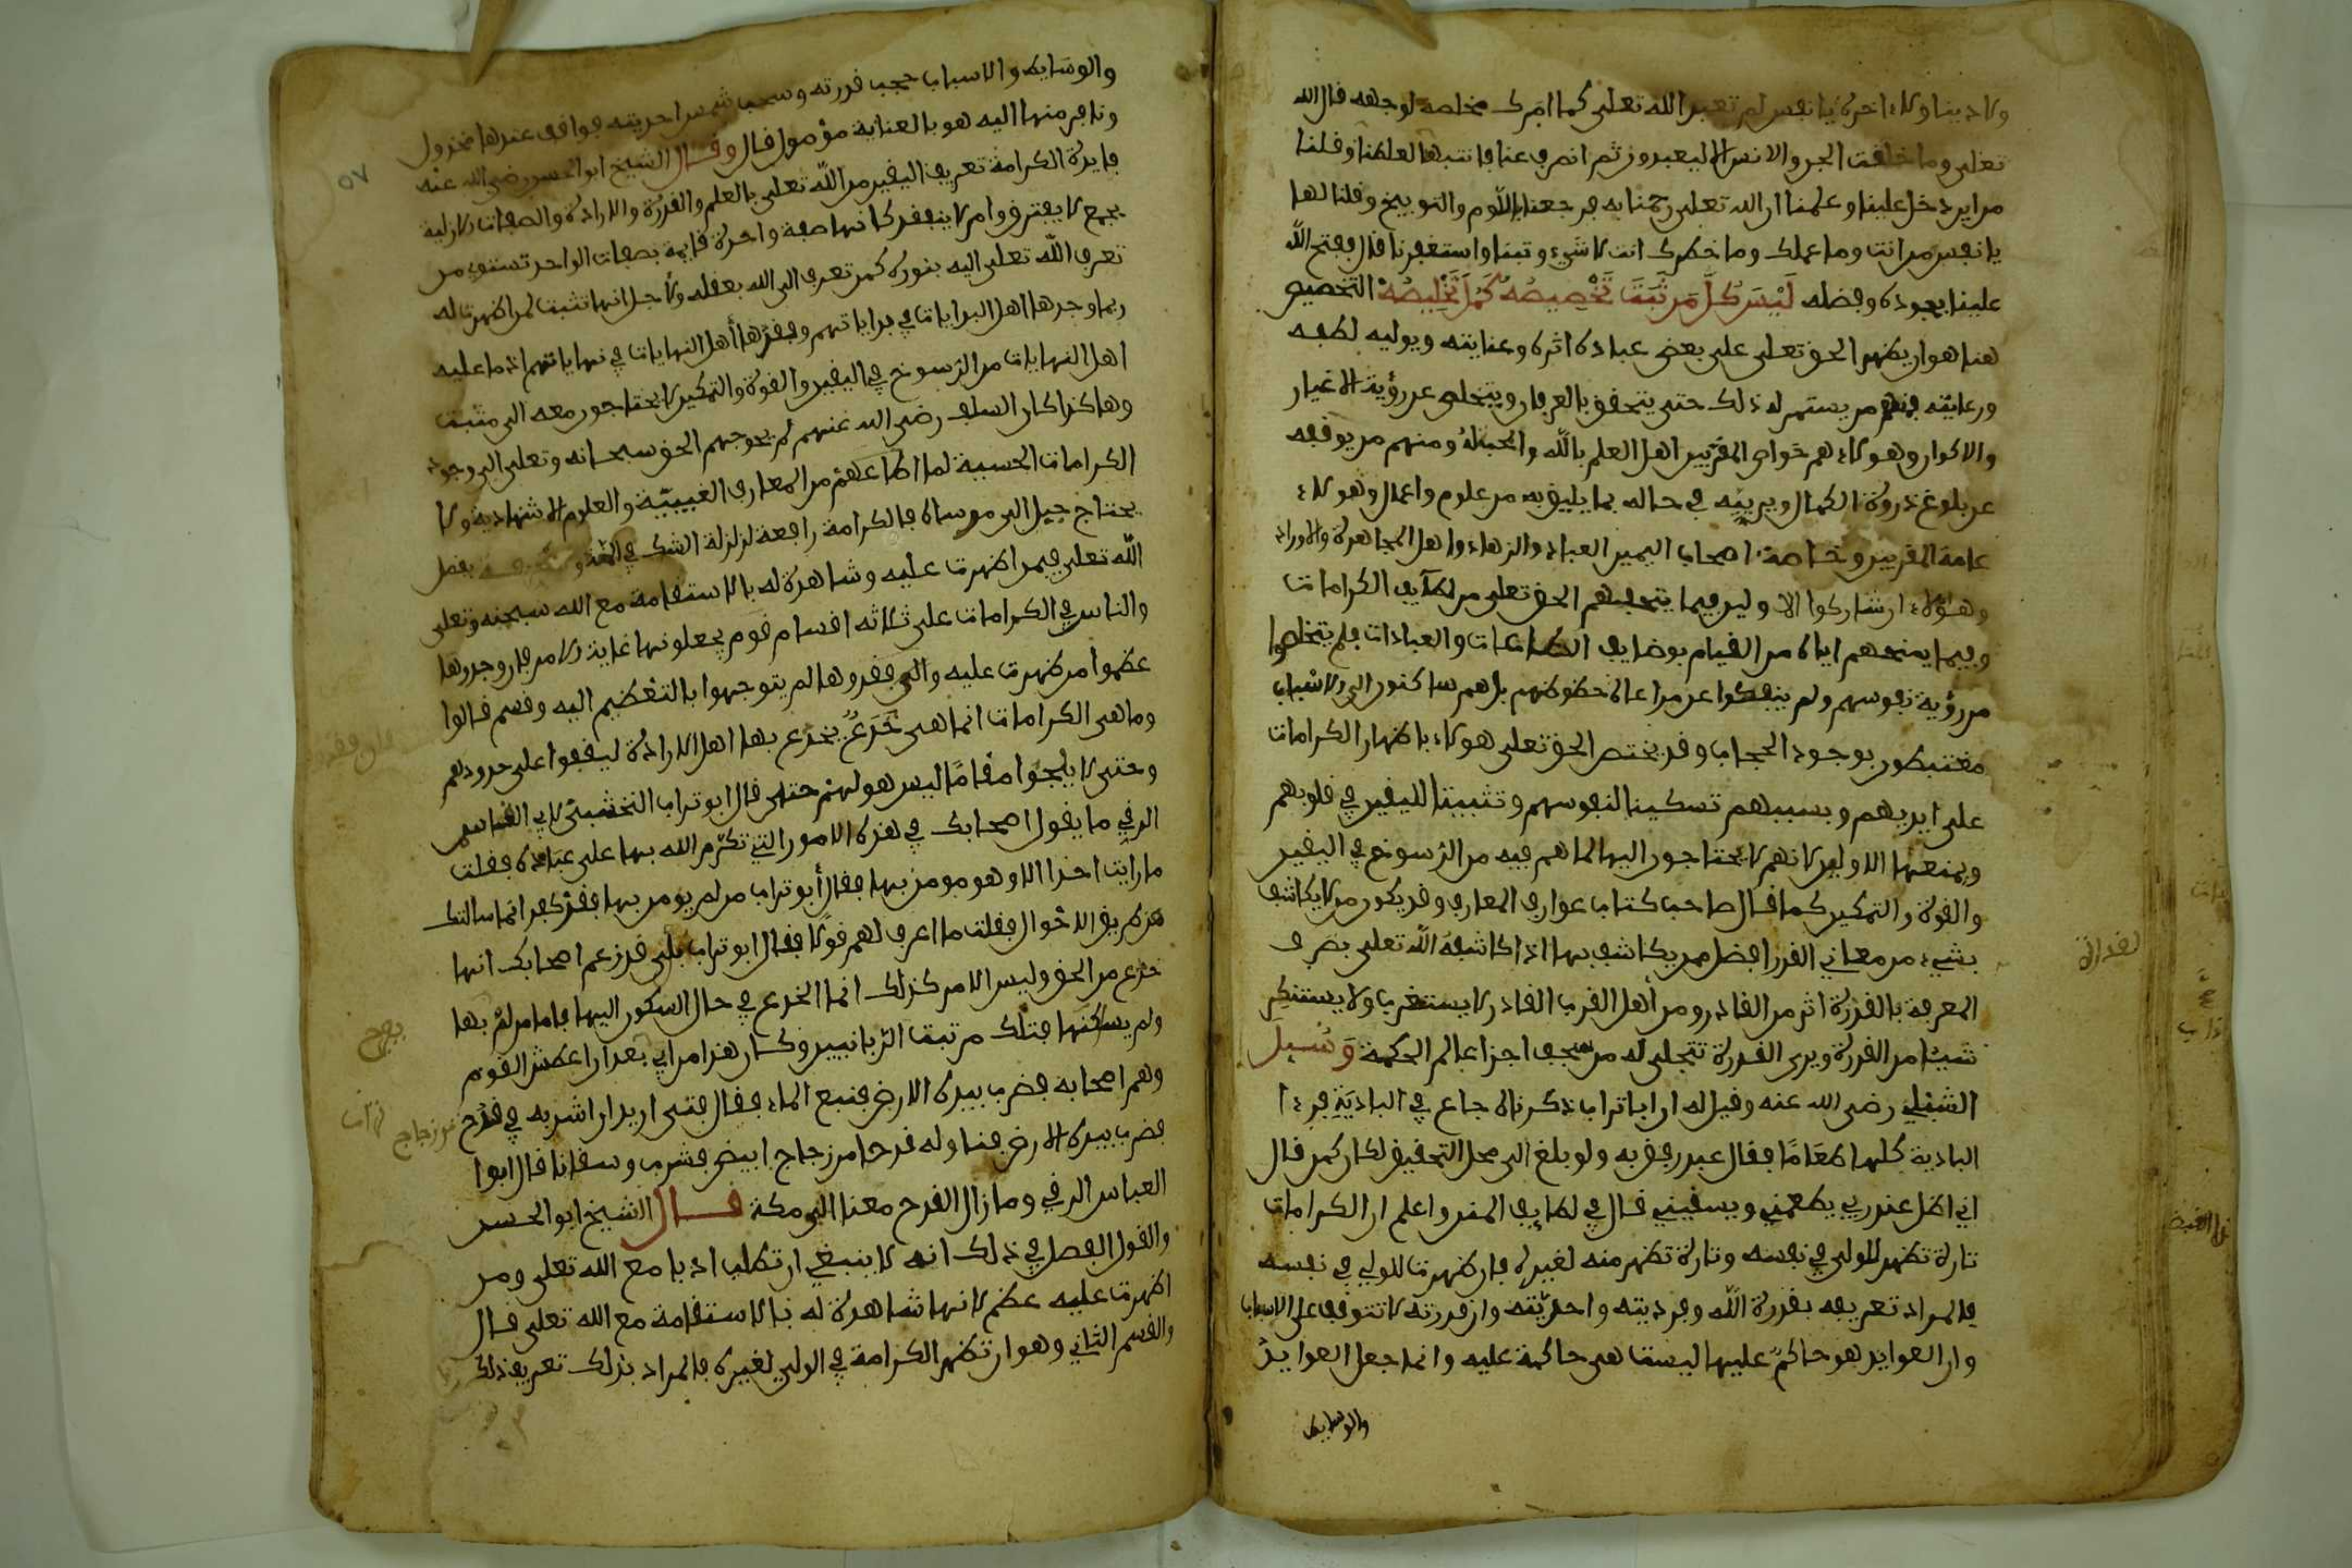 ولا دينا ولا اخرة يا نفس لم تعبد الله تعلى كما امرك مخلصة لوجهه قال الله
تعلى وما خلقت الجن والانس الا ليعبدون ثم انصرف عنا فانتبهنا لعلمنا وقلنا
من اين دخل علينا وعلمنا ان الله تعلى رحمنا به فرجعنا باللوم والتوبيخ وقلنا لها
يا نفس من انت وما عملك وما خطرك انت لا شيء وتبنا واستغفرنا قال ففتح الله
علينا بجوده وفضله لَيْسَ كُلُّ مَن ثَبَتَ تَخْصِيصُهُ كَمُلَ تَخْلِيصُهُ التخصيص
هنا هو ان يظهر الحق تعلى على بعض عباده اثره وعنايته ويوليه لطفه
ورعايته فمنهم من يستمر له ذلك حتى يتحقق بالعرفان ويتخلص عن رؤية الاغيار
والاكوان وهولاء هم خواص المقربين اهل العلم بالله والمحبة له ومنهم من يوقفه
عن بلوغ ذروة الكمال ويربيه في حاله بما يليق به من علوم واعمال وهولاء
عامة المقربين وخاصة اصحاب اليمين العباد والزهاد واهل المجاهدة والاوراد
وهؤلاء ان شاركوا الاولين فيما يتحفهم الحق تعلى من لطآيف الكرامات
وفيما يمنحهم اياه من القيام بوضايف الطاعات والعبادات فلم يتخلصوا
من رؤية نفوسهم ولم ينفكوا عن مراعاة حظوظهم بل هم ساكنون الى الاسباب
مغتبطون بوجود الحجاب وقد يختص الحق تعلى هولاء باظهار الكرامات
على ايديهم وبسببهم تسكينا لنفوسهم وتثبيتا لليقين في قلوبهم
ويمنعها الاولين لانهم لا يحتاجون اليها لما هم فيه من الرسوخ في اليقين
والقوة والتمكين كما قال صاحب كتاب عوارف المعارف وقد يكون من لا يكاشف
بشيء من معاني القدر افضل ممن يكاشف بها اذا كاشفه الله تعلى بصرف
المعرفة بالقدرة اثر من القادر ومن أهل القرب القادر لا يستغرب ولا يستنكر
شيئا من القدرة ويرى القدرة تتجلى له من سجف اجزا عالم الحكمة وَسُيل
الشبلي رضي الله عنه وقيل له ان ابا تراب ذكر انه جاع في البادية فرءا
البادية كلها طعامًا فقال عبد رفق به ولو بلغ الى محل التحقيق لكان كمن قال
اني اظل عند ربي يطعمني ويسقيني قال في لطايف المنن واعلم ان الكرامات
تارة تظهر للولي في نفسه وتارة تظهر منه لغيره فان ظهرت للولي في نفسه
فالمراد تعريفه بقدرة الله وفرديته واحديته وان قدرته لا تتوقف على الاسباب
وان العوايد هو حاكم عليها ليست هي حاكمة عليه وانما جعل العوايد
والوسايط
والوسايط والاسباب حجب قدرته وسحب شمس احديته فواقف عندها مخذول
ونافذ منها اليه هو بالعناية موصول قال وقال الشيخ ابو الحسن رضي الله عنه
فايدة الكرامة تعريف اليقين من الله تعلى بالعلم والقدرة والارادة والصفات الازلية
بجمع لا يفترق وامر لا ينفقد كانها صفة واحدة قايمة بصفات الواحد تستوي من
تعرف الله تعلى اليه بنوره كمن تعرف الى الله بعقله ولاجل انها تثبت لمن اظهرت له
ربما وجدها اهل البدايات في بداياتهم وفقدها أهل النهايات في نهاياتهم اذ ما عليه
اهل النهايات من الرسوخ في اليقين والقوة والتمكين لا يحتاجون معه الى مثبت
وهاكذا كان السلف رضي الله عنهم لم يحوجهم الحق سبحانه وتعلى الى وجود
الكرامات الحسية لما اعطاهم من المعارف الغيبية والعلوم الاشهادية ولا
يحتاج جبل الى مرساة فالكرامة رافعة لزلزلة الشك في المنة بفضل
الله تعلى فيمن اظهرت عليه وشاهدة له بالاستقامة مع الله سبحنه وتعلى
والناس في الكرامات على ثلاثه اقسام قوم يجعلونها غاية الامر فان وجدوها
عظموا من ظهرت عليه والى فقدوها لم يتوجهوا بالتعظيم اليه وقسم قالوا
وما هي الكرامات انما هي خَدَعٌ يخدع بها اهل الارادة ليقفوا على حدودهم
وحتى لا يلجوا مقامًا ليس هو لهم حتى قال ابو تراب النخشبي لابي العباس
الرقي ما يقول اصحابك في هذه الامور التي تكرم الله بها على عباده فقلت
ما رايت احدا الا وهو مومن بها فقال أبو تراب من لم يومن بها فقد كفر انما سالتك
من طريق الاحوال فقلت ما اعرف لهم قولا فقال ابو تراب بلى قد زعم اصحابك انها
خدع من الحق وليس الامر كذلك انما الخدع في حال السكون اليها فاما من لم بها
ولم يساكنها فتلك مرتبت الربانيين وكان هذا من ابي بعد ان اعطش القوم
وهم اصحابه فضرب بيده الارض فنبع الماء فقال فتى اريد ان اشربه في قدح
فضرب بيده الارض فناوله قدحا من زجاج ابيض فشرب وسقانا قال ابوا
العباس الرقي وما زال القدح معنا الى مكة قال الشيخ ابو الحسن
والقول الفصل في ذلك انه لا ينبغي ان تطلب ادبا مع الله تعلى ومن
اظهرت عليه عظم لانها شاهدة له بالاستقامة مع الله تعلى قال
والقسم الثاني وهو ان تظهر الكرامة في الولي لغيره فالمراد بذلك تعريف ذلك
٥٧
من زجاج